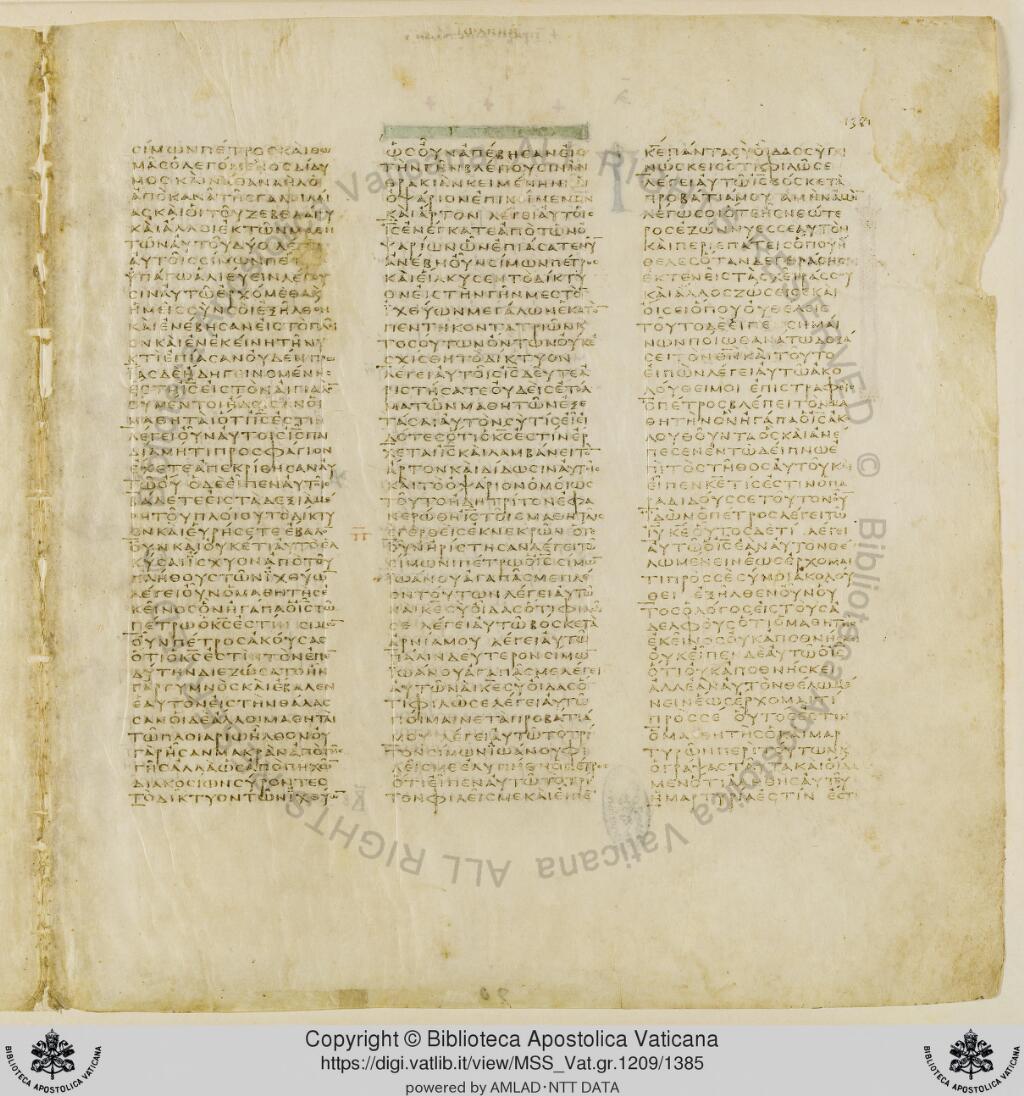 ΣΙΜΩΝΠΕΤΡΟΣΚΑΙΘΩ
ΜΑΣΟΛΕΓΟΜΕΝΟΣΔΙΔΥ
ΜΟΣΚΑΙΝΑΘΑΝΑΗΛΟ
ΑΠΟΚΑΝΑΤΗΣΓΑΛΙΛΑΙ
ΑΣΚΑΙΟΙΤΟΥΖΕΒΕΔΑΙΟΥ
ΚΑΙΑΛΛΟΙΕΚΤΩΝΜΑΘΗ
ΤΩΝΑΥΤΟΥΔΥΟ ΛΕΓΕΙ
ΑΥΤΟΙΣΣΙΜΩΝΠΕΤ
ΥΠΑΓΩΑΛΙΕΥΕΙΝΛΕΓΟΥ
ΣΙΝΑΥΤΩΕΡΧΟΜΕΘΑΚ
ΗΜΕΙΣΣΥΝΣΟΙΕΞΗΛΘΟΝ
ΚΑΙΕΝΕΒΗΣΑΝΕΙΣΤΟΠΛΟΙ
ΟΝΚΑΙΕΝΕΚΕΙΝΗΤΗΝΥ
ΚΤΙΕΠΙΑΣΑΝΟΥΔΕΝΠΡΩ
ΙΑΣΔΕΗΔΗΓΕΙΝΟΜΕΝΗΣ
ΕΣΤΗΙΣΕΙΣΤΟΝΑΙΓΙΑΛΟ
ΟΥΜΕΝΤΟΙΗΔΕΙΣΑΝΟΙ
ΜΑΘΗΤΑΙΟΤΙΙΣΕΣΤΙΝ
ΛΕΓΕΙΟΥΝΑΥΤΟΙΣΙΣΠΑΙ
ΔΙΑΜΗΤΙΠΡΟΣΦΑΓΙΟΝ
ΕΧΕΤΕΑΠΕΚΡΙΘΗΣΑΝΑΥ
ΤΩΟΥ ΟΔΕΕΙΠΕΝΑΥΤΟΙΣ
ΒΑΛΕΤΕΕΙΣΤΑΔΕΞΙΑΜΕ
ΡΗΤΟΥΠΛΟΙΟΥΤΟΔΙΚΤΥ
ΟΝΚΑΙΕΥΡΗΣΕΤΕΕΒΑΛΟ
ΟΥΝΚΑΙΟΥΚΕΤΙΑΥΤΟΕΛ
ΚΥΣΑΙΙΣΧΥΟΝΑΠΟΤΟΥ
ΠΛΗΘΟΥΣΤΩΝΙΧΘΥΩ
ΛΕΓΕΙΟΥΝΟΜΑΘΗΤΗΣΕ
ΚΕΙΝΟΣΟΝΗΓΑΠΑΟΙΣΤΩ
ΠΕΤΡΩΟΚΣΕΣΤΙΝ ΣΙΜΩ
ΟΥΝΠΕΤΡΟΣΑΚΟΥΣΑΣ
ΟΤΙΟΚΣΕΣΤΙΝΤΟΝΕΠΕ
ΔΥΤΗΝΔΙΕΖΩΣΑΤΟΗΝ
ΓΑΡΓΥΜΝΟΣΚΑΙΕΒΑΛΕΝ
ΕΑΥΤΟΝΕΙΣΤΗΝΘΑΛΑΣ
ΣΑΝΟΙΔΕΑΛΛΟΙΜΑΘΗΤΑΙ
ΤΩΠΛΟΙΑΡΙΩΗΛΘΟΝΟΥ
ΓΑΡΗΣΑΝΜΑΚΡΑΝΑΠΟΤΗΣ
ΓΗΣΑΛΛΑΩΣΑΠΟΠΗΧΩ
ΔΙΑΚΟΣΙΩΝΣΥΡΟΝΤΕΣ
ΤΟΔΙΚΤΥΟΝΤΩΝΙΧΘΥΩ
ΩΣΟΥΝΑΠΕΒΗΣΑΝΕΙΣ
ΤΗΝΓΗΝΒΛΕΠΟΥΣΙΝΑΝ
ΘΡΑΚΙΑΝΚΕΙΜΕΝΗΝΚΑΙ
ΟΨΑΡΙΟΝΕΠΙΚΕΙΜΕΝΟΝ
ΚΑΙΑΡΤΟΝ ΛΕΓΕΙΑΥΤΟΙΣ
ΙΣΕΝΕΓΚΑΤΕΑΠΟΤΩΝΟ
ΨΑΡΙΩΝΩΝΕΠΙΑΣΑΤΕΝΥ
ΑΝΕΒΗΟΥΝΣΙΜΩΝΠΕΤΡΟΣ
ΚΑΙΕΙΛΚΥΣΕΝΤΟΔΙΚΤΥ
ΟΝΕΙΣΤΗΝΓΗΝΜΕΣΤΟ
ΙΧΘΥΩΝΜΕΓΑΛΩΝΕΚΑΤΟ
ΠΕΝΤΗΚΟΝΤΑΤΡΙΩΝΚ
ΤΟΣΟΥΤΩΝΟΝΤΩΝΟΥΚΕ
ΣΧΙΣΘΗΤΟΔΙΚΤΥΟΝ
ΛΕΓΕΙΑΥΤΟΙΣΙΣΔΕΥΤΕΑ
ΡΙΣΤΗΣΑΤΕΟΥΔΕΙΣΕΤΟΛ
ΜΑΤΩΝΜΑΘΗΤΩΝΕΞΕ
ΤΑΣΑΙΑΥΤΟΝΣΥΤΙΣΕΙΕΙ
ΔΟΤΕΣΟΤΙΟΚΣΕΣΤΙΝΕΡ
ΧΕΤΑΙΙΣΚΑΙΛΑΜΒΑΝΕΙΤΟ
ΑΡΤΟΝΚΑΙΔΙΔΩΣΙΝΑΥΤΟΙΣ
ΚΑΙΤΟΟΨΑΡΙΟΝΟΜΟΙΩΣ
ΤΟΥΤΟΗΔΗΤΡΙΤΟΝΕΦΑ
ΝΕΡΩΘΗΙΣΤΟΙΣΜΑΘΗΤΑΙΣ
ΕΓΕΡΘΕΙΣΕΚΝΕΚΡΩΝ ΟΤΕ
ΟΥΝΗΡΙΣΤΗΣΑΝΛΕΓΕΙΤΩ
ΣΙΜΩΝΙΠΕΤΡΩΟΙΣΣΙΜΩ
ΙΩΑΝΟΥΑΓΑΠΑΣΜΕΠΛΕ
ΟΝΤΟΥΤΩΝΛΕΓΕΙΑΥΤΩ
ΝΑΙΚΕΣΥΟΙΔΑΣΟΤΙΦΙΛΩ
ΣΕ ΛΕΓΕΙΑΥΤΩΒΟΣΚΕΤΑ
ΑΡΝΙΑΜΟΥ ΛΕΓΕΙΑΥΤΩ
ΠΑΛΙΝΔΕΥΤΕΡΟΝΣΙΜΩ
ΙΩΑΝΟΥΑΓΑΠΑΣΜΕΛΕΓΕΙ
ΑΥΤΩΝΑΙΚΕΣΥΟΙΔΑΣΟ
ΤΙΦΙΛΩΣΕΛΕΓΕΙΑΥΤΩ
ΠΟΙΜΑΙΝΕΤΑΠΡΟΒΑΤΙΑ
ΜΟΥ ΛΕΓΕΙΑΥΤΩΤΟΤΡΙ
ΤΟΝΣΙΜΩΝΙΩΑΝΟΥΦΙ
ΛΕΙΣΜΕΕΛΥΠΗΘΗΟΠΕΤΡΟΣ
ΟΤΙΕΙΠΕΝΑΥΤΩΤΟΤΡΙ
ΤΟΝΦΙΛΕΙΣΜΕΚΑΙΕΙΠΕ
ΚΕΠΑΝΤΑΣΥΟΙΔΑΣΣΥΓΙ
ΝΩΣΚΕΙΣΟΤΙΦΙΛΩΣΕ
ΛΕΓΕΙΑΥΤΩΙΣΒΟΣΚΕΤΑ
ΠΡΟΒΑΤΙΑΜΟΥ ΑΜΗΝΑΜΗ
ΛΕΓΩΣΟΙΟΤΕΗΣΝΕΩΤΕ
ΡΟΣΕΖΩΝΝΥΕΣΣΕΑΥΤΟΝ
ΚΑΙΠΕΡΙΕΠΑΤΕΙΣΟΠΟΥΗ
ΘΕΛΕΣΟΤΑΝΔΕΓΕΡΑΣΗΣ
ΕΚΤΕΝΕΙΣΤΑΣΧΕΙΡΑΣΣΟΥ
ΚΑΙΑΛΛΟΣΖΩΣΕΙΣΕΚΑΙ
ΟΙΣΕΙΟΠΟΥΟΥΘΕΛΕΙΣ
ΤΟΥΤΟΔΕΕΙΠΕ ΣΗΜΑΙ
ΝΩΝΠΟΙΩΘΑΝΑΤΩΔΟΞΑ
ΣΕΙΤΟΝΘΝΚΑΙΤΟΥΤΟ
ΕΙΠΩΝΛΕΓΕΙΑΥΤΩΑΚΟ
ΛΟΥΘΕΙΜΟΙ ΕΠΙΣΤΡΑΦΕΙΣ
ΟΠΕΤΡΟΣΒΛΕΠΕΙΤΟΝΜΑ
ΘΗΤΗΝΟΝΗΓΑΠΑΟΙΣΑΚΟ
ΛΟΥΘΟΥΝΤΑΟΣΚΑΙΑΝΕ
ΠΕΣΕΝΕΝΤΩΔΕΙΠΝΩΕ
ΠΙΤΟΣΤΗΘΟΣΑΥΤΟΥΚΑΙ
ΕΙΠΕΝΚΕΤΙΣΕΣΤΙΝΟΠΑ
ΡΑΔΙΔΟΥΣΣΕΤΟΥΤΟΝΟΥ
ΙΔΩΝΟΠΕΤΡΟΣΛΕΓΕΙΤΩ
ΙΥΚΕΟΥΤΟΣΔΕΤΙ ΛΕΓΕΙ
ΑΥΤΩΟΙΣΕΑΝΑΥΤΟΝΘΕ
ΛΩΜΕΝΕΙΝΕΩΣΕΡΧΟΜΑΙ
ΤΙΠΡΟΣΣΕΣΥΜΟΙΑΚΟΛΟΥ
ΘΕΙ ΕΞΗΛΘΕΝΟΥΝΟΥ
ΤΟΣΟΛΟΓΟΣΕΙΣΤΟΥΣΑ
ΔΕΛΦΟΥΣΟΤΙΟΜΑΘΗΤΗΣ
ΕΚΕΙΝΟΣΟΥΚΑΠΟΘΝΗΣΚΕΙ
ΟΥΚΕΙΠΕΝΔΕΑΥΤΩΟΙΣ
ΟΤΙΟΥΚΑΠΟΘΝΗΣΚΕΙ
ΑΛΛΕΑΝΑΥΤΟΝΘΕΛΩΜΕ
ΝΕΙΝΕΩΣΕΡΧΟΜΑΙΤΙ
ΠΡΟΣΣΕ ΟΥΤΟΣΕΣΤΙΝ
ΟΜΑΘΗΤΗΣΟΚΑΙΜΑΡ
ΤΥΡΩΝΠΕΡΙΤΟΥΤΩΝΚ
ΟΓΡΑΨΑΣΤΑΥΤΑΚΑΙΟΙΔΑ
ΜΕΝΟΤΙΑΛΗΘΗΣΑΥΤΟΥ
ΗΜΑΡΤΥΡΙΑΕΣΤΙΝ ΕΣΤΙ
1381
Copyright © Biblioteca Apostolica Vaticana
https://digi.vatlib.it/view/MSS_Vat.gr.1209/1385
powered by AMLAD·NTT DATA